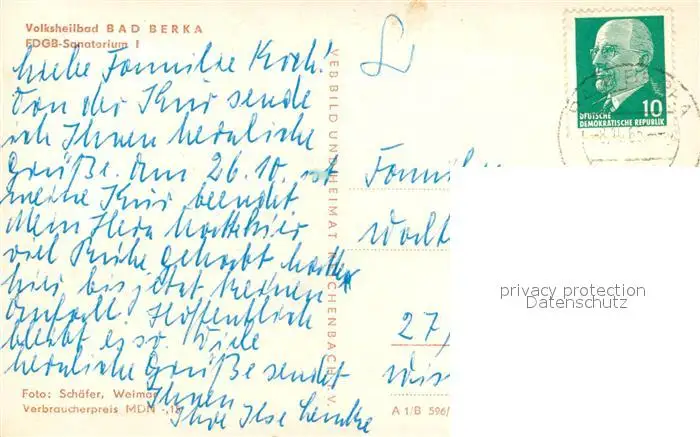 Volksheilbad BAD BERKA
FDGB-Sanatorium I
Liebe Familie Koch!
Von der Kur sende
ich Ihnen herzliche
Grüße. Am 26.10. ist
meine Kur beendet
Mein Herz
viel Ruhe gehabt hatte
hier bis jetzt keinen
Anfall. Hoffentlich
bleibt es so. Viele
herzliche Grüße sendet
Ihnen
Ihre Ilse
Foto: Schäfer, Weimar
Verbraucherpreis MDN -,18
VEB BILD UND HEIMAT REICHENBACH i. V.
A 1/B 596/
10
DEUTSCHE
DEMOKRATISCHE REPUBLIK
BAD BERKA
Famili
Walt
27/
Wis
privacy protection
Datenschutz